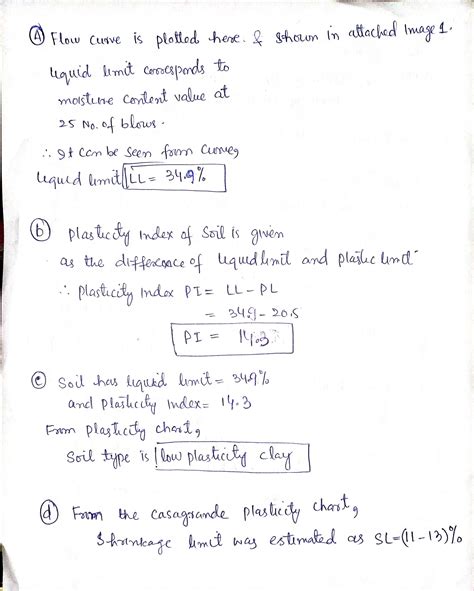 (A) Flow curve is plotted here. & shown in attached Image 1.
liquid limit corresponds to
moisture content value at
25 No. of blows.
∴ It can be seen from curve,
liquid limit LL = 34.9%
(b) Plasticity Index of Soil is given
as the difference of liquid limit and plastic limit
∴ Plasticity Index PI = LL - PL
= 34.9 - 20.5
PI = 14.3
(c) Soil has liquid limit = 34.9%
and Plasticity Index = 14.3
From Plasticity chart,
Soil type is low plasticity clay
(d) From the casagrande plasticity chart,
Shrinkage limit was estimated as SL=(11-13)%